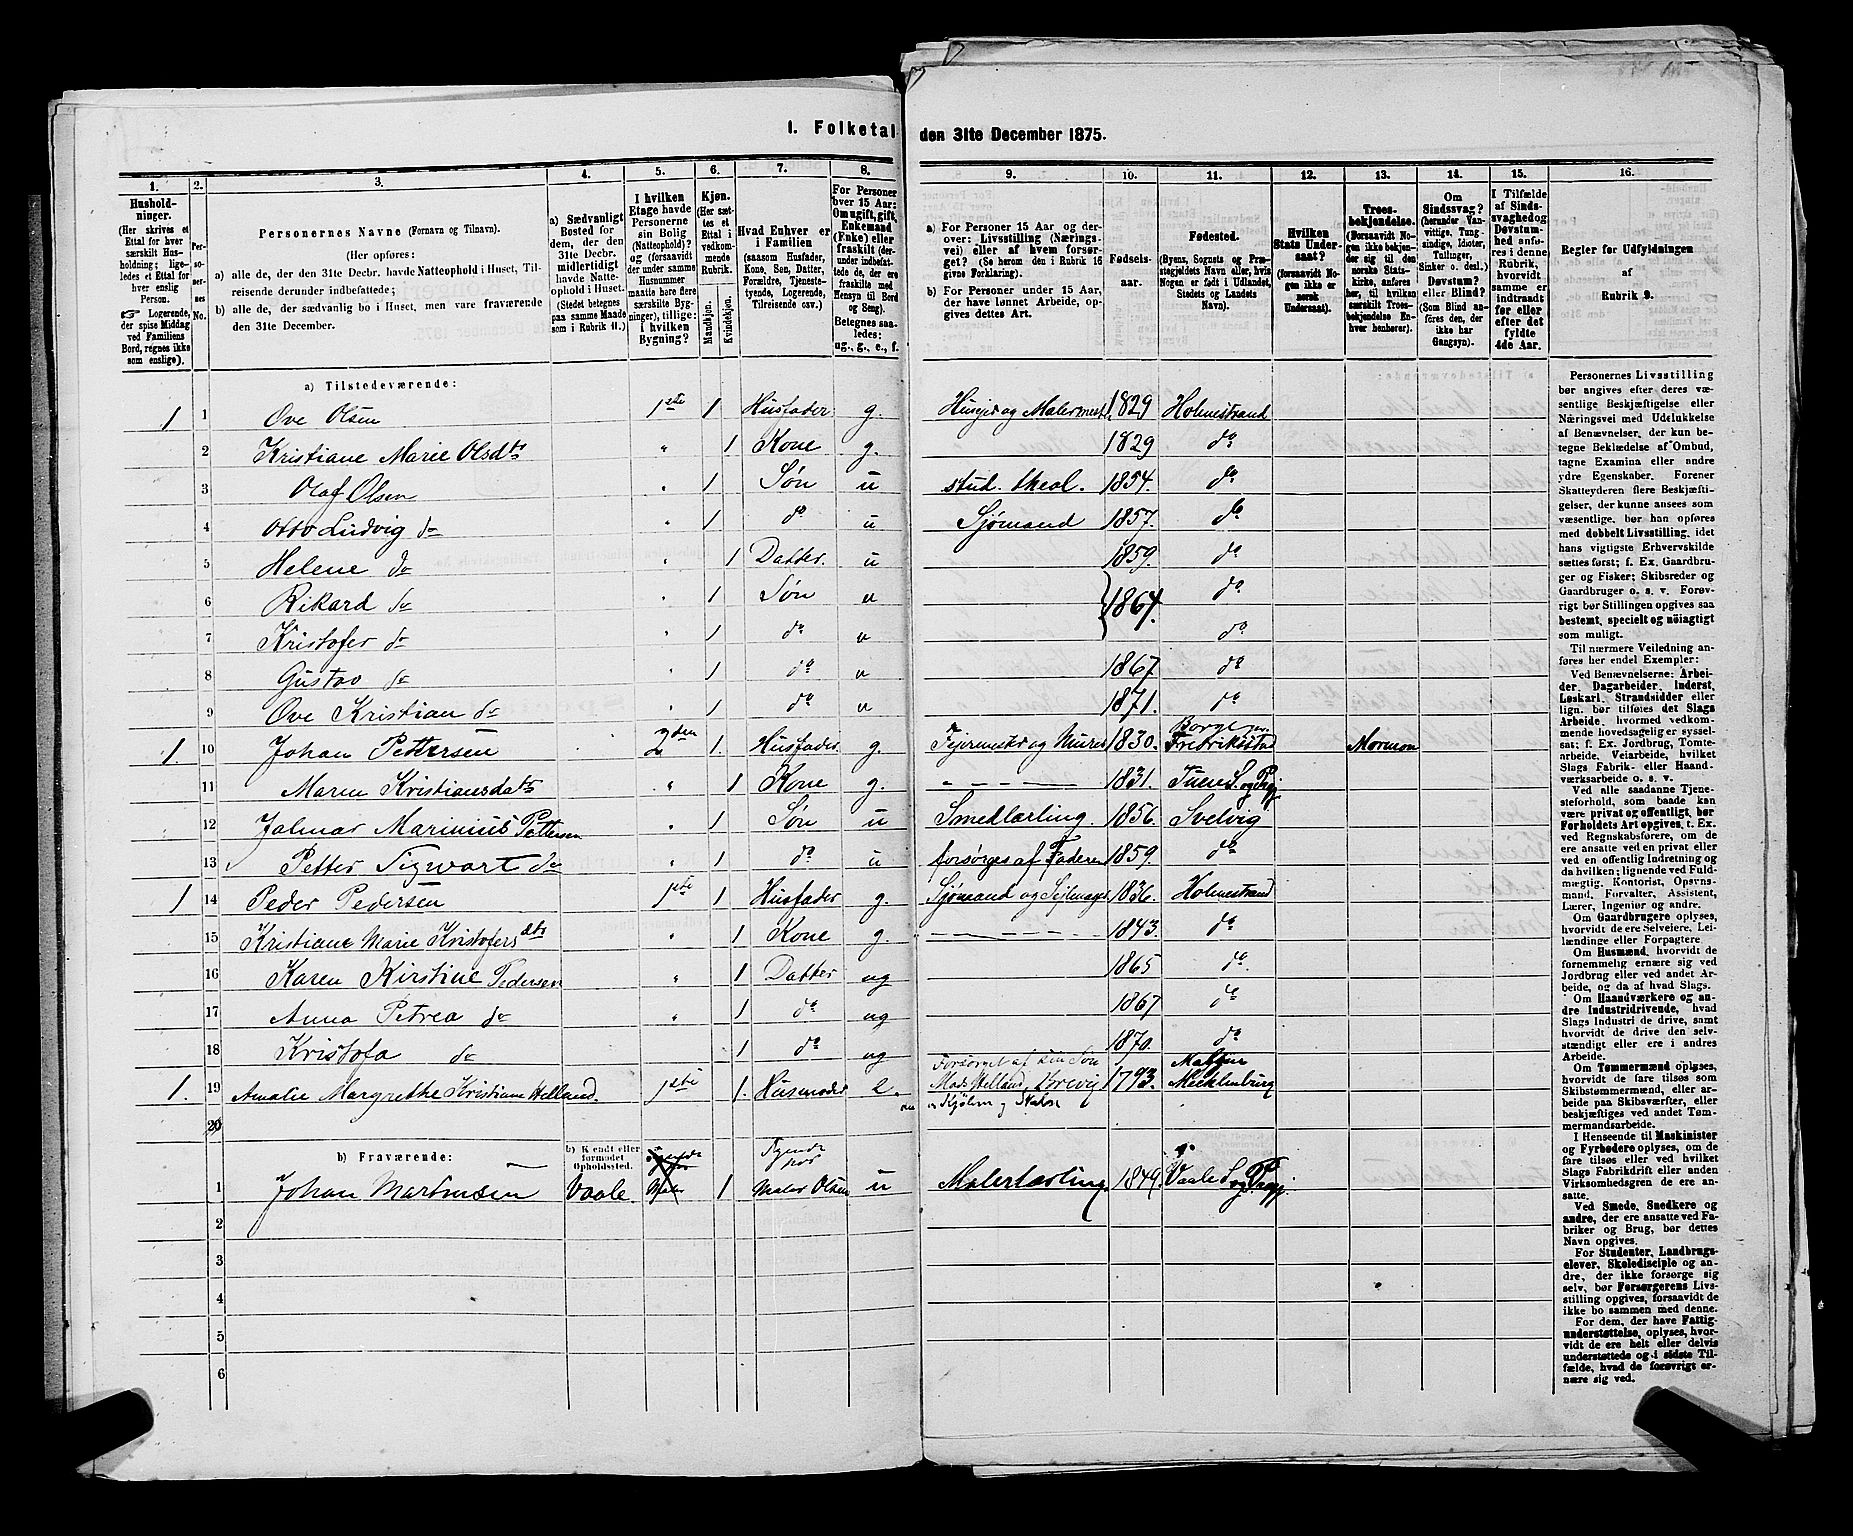 I. Folketal den 31te December 1875.
1. 2. 3. 4. 5. 6. 7. 8. 9. 10. 11. 12. 13. 14. 15. 16.
Hushold-
ninger.
(Her skrives et
Ettal for hver
særskilt Hus-
holdning; lige-
ledes et Ettal for
hver enslig
Person.
☞ Logerende,
der spise Middag
ved Familiens
Bord, regnes ikke
som enslige).
Per-
so-
ner-
nes
No.
Personernes Navne (Fornavn og Tilnavn).
(Her opføres:
a) alle de, der den 31te Decbr. havde Natteophold i Huset, Til-
reisende derunder indbefattede;
b) alle de, der sædvanlig bo i Huset, men vare fraværende
den 31te Decbr.
a) Sædvanligt
Bosted for
dem, der den
31te Decbr.
midlertidigt
havde Natte-
ophold i Huset.
(Stedet betegnes
paa samme Maade
som i Rubrik 11.)
I hvilken
Etage havde
Personerne
sin Bolig
(Natteophold)?
og (forsaavidt
der under samme
Husnummer
maatte høre flere
særskilte Byg-
ninger), tillige:
i hvilken
Bygning?
Kjøn.
(Her sæt-
tes et
Ettal i
vedkom-
mende
Rubrik.
Mandkjøn.
Kvindekjøn.
Hvad Enhver er
i Familien
(saasom Husfader,
Kone, Søn, Datter,
Forældre, Tjeneste-
tyende, Logerende,
Tilreisende osv.)
For Personer
over 15 Aar:
Om ugift, gift,
Enkemand
(Enke) eller
fraskilt (der-
under indbefat-
tede de, der ere
fraskilte med
Hensyn til Bord
og Seng).
Betegnes saa-
ledes:
ug., g., e., f.
a) For Personer 15 Aar og der-
over: Livsstilling (Nærings-
vei) eller af hvem forsør-
get? (Se herom den i Rubrik 16
givne Forklaring).
b) For Personer under 15 Aar,
der have lønnet Arbeide, op-
gives dettes Art.
Fødsels-
aar.
Fødested.
(Byens, Sognets og Præ-
stegjeldets Navn eller, hvis
Nogen er født i Udlandet,
Stedets og Landets
Navn).
Hvilken
Stats Under-
saat?
(forsaavidt No-
gen ikke er
norsk
Undersaat).
Troes-
bekjendelse.
(Forsaavidt No-
gen ikke bekjen-
der sig til den
norske Stats-
kirke, anføres
her, til hvilken
særskilt Troes-
bekjendelse En-
hver henhører).
Om
Sindssvag?
(herunder Van-
vittige, Tung-
sindige, Idioter,
Tullinger,
Sinker o. desl.)
Døvstum?
eller Blind?
(Som Blind an-
føres den, der
ikke har
Gangsyn).
I Tilfælde
af Sinds-
svaghed og
Døvstum-
hed anfø-
res i denne
Rubrik,
hvorvidt
samme er
indtraadt
før eller
efter det
fyldte
4de Aar.
Regler for Udfyldningen
af
Rubrik 9.
a) Tilstedeværende:
1 1 Ove Olsen 1ste 1 Husfader g. Huseier og Malermest. 1829 Holmestrand
2 Kristiane Marie Olsdtr " 1 Kone g. 1829 do
3 Olaf Olsen " 1 Søn u stud. theol. 1854. do
4 Otto Ludvig do " 1 do u Sjømand 1857. do
5 Helene do " 1 Datter. u 1859. do
6 Rikard do " 1 Søn u } 1864. do
7 Kristofer do " 1 do u do
8 Gustav do " 1 do u 1867. do
9 Ove Kristian do " 1 do u 1871. do
1. 10 Johan Pettersen 2den 1. Husfader g. Feiermester og Murer 1830. Borge pr. Fredriksstad Mormon
11 Maren Kristiansdatr " 1 Kone g. " - - - - 1831. Tune S. og Prgj
12 Jalmar Marinius Pettersen " 1 Søn u Smedlærling. 1856. Svelvig
13 Petter Sigwart do " 1 do u forsørges af Faderen 1859. do
1 14 Peder Pedersen 1ste 1 Husfader g. Sjømand og Seilmager 1836. Holmestrand
15 Kristiane Marie Kristofersdtr " 1 Kone g. - - - - 1843. do
16 Karen Kirstine Pedersen " 1 Datter ug 1865 do.
17 Anna Petrea do " 1 do ug 1867 do
18 Kristofa do 1 do ug 1870. do
Forsørget af sin Søn
1. 19 Amalie Margrethe Kristiane Helland. 1ste 1. Husmoder e. Mads Helland, Brevig 1793. Mecklenburg
20
b) Fraværende:
b) Kjendt eller
formodet
Opholdssted.
1 Johan Martinsen Vaale 1 Tyende hos Maler Olsen u Malerlærling. 1849. Vaale S. og Prgj.
2
3
4
5
6
Personernes Livsstilling
bør angives efter deres væ-
sentlige Beskjæftigelse eller
Næringsvei med Udelukkelse
af Benævnelser, der kun be-
tegne Beklædelse af Ombud,
tagne Examina eller andre
ydre Egenskaber. Forener
Skatteyderen flere Beskjæfti-
gelser, der kunne ansees som
væsentlige, bør han opføres
med dobbelt Livsstilling, idet
hans vigtigste Erhvervskilde
sættes først; f. Ex. Gaardbru-
ger og Fisker; Skibsreder og
Gaardbruger o. s. v. Forøv-
rigt bør Stillingen opgives saa
bestemt, specielt og nöiagtigt
som muligt.
Til nærmere Veiledning an-
føres her endel Exempler:
Ved Benævnelserne: Arbei-
der, Dagarbeider, Inderst,
Løskarl, Strandsidder eller
lign. bør tilføies det Slags
Arbeide, hvormed vedkom-
mende hovedsagelig er syssel-
sat; f. Ex. Jordbrug, Tomte-
arbeide, Veiarbeide, hvilket
Slags Fabrik- eller Haand-
værksarbeide o. s. v.
Ved alle saadanne Tjene-
steforhold, som baade kan
være privat og offentligt, bør
Forholdets Art opgives, t. Ex.
ved Regnskabsførere, om de
ere ansatte ved en privat eller
ved en offentlig Indretning og
da hvilken; lignende ved Fuld-
mægtig, Kontorist, Opsyns-
mand, Forvalter, Assistent,
Lærer, Ingeniør og andre.
Om Gaardbrugere oplyses,
hvorvidt de ere Selveiere, Lei-
lændinge eller Forpagtere.
Om Husmænd, hvorvidt de
fornemmelig ernære sig ved
Jordbrug eller ved andet Ar-
beide, og da af hvad Slags.
Om Haandværkere og an-
dre Industridrivende, hvad
Slags Industri de drive, samt
hvorvidt de drive den selv-
stændigt eller ere i andres
Arbeide.
Om Tømmermænd oplyses,
hvorvidt de fare tilsøs som
Skibstømmermænd, eller ar-
beide paa Skibsværfter, eller
beskjæftiges ved andet Tøm-
mermandsarbeide.
I Henseende til Maskinister
og Fyrbødere oplyses, om de
fare tilsøs eller ved hvilket
Slags Fabrikdrift eller anden
Virksomhedsgren de ere an-
satte.
Ved Smede, Snedkere og
andre, der ere ansatte ved Fa-
briker og Brug, bør dettes
Navn opgives.
For Studenter, Landbrugs-
elever, Skoledisciple og an-
dre, der ikke forsørge sig
selv, bør Forsørgerens Livs-
stilling opgives, forsaavidt de
ikke bo sammen med denne.
For dem, der have Fattig-
understøttelse, oplyses, hvor-
vidt de ere helt eller delvis
understøttede og i sidste Til-
fælde, hvad de forøvrigt er-
nære sig ved.